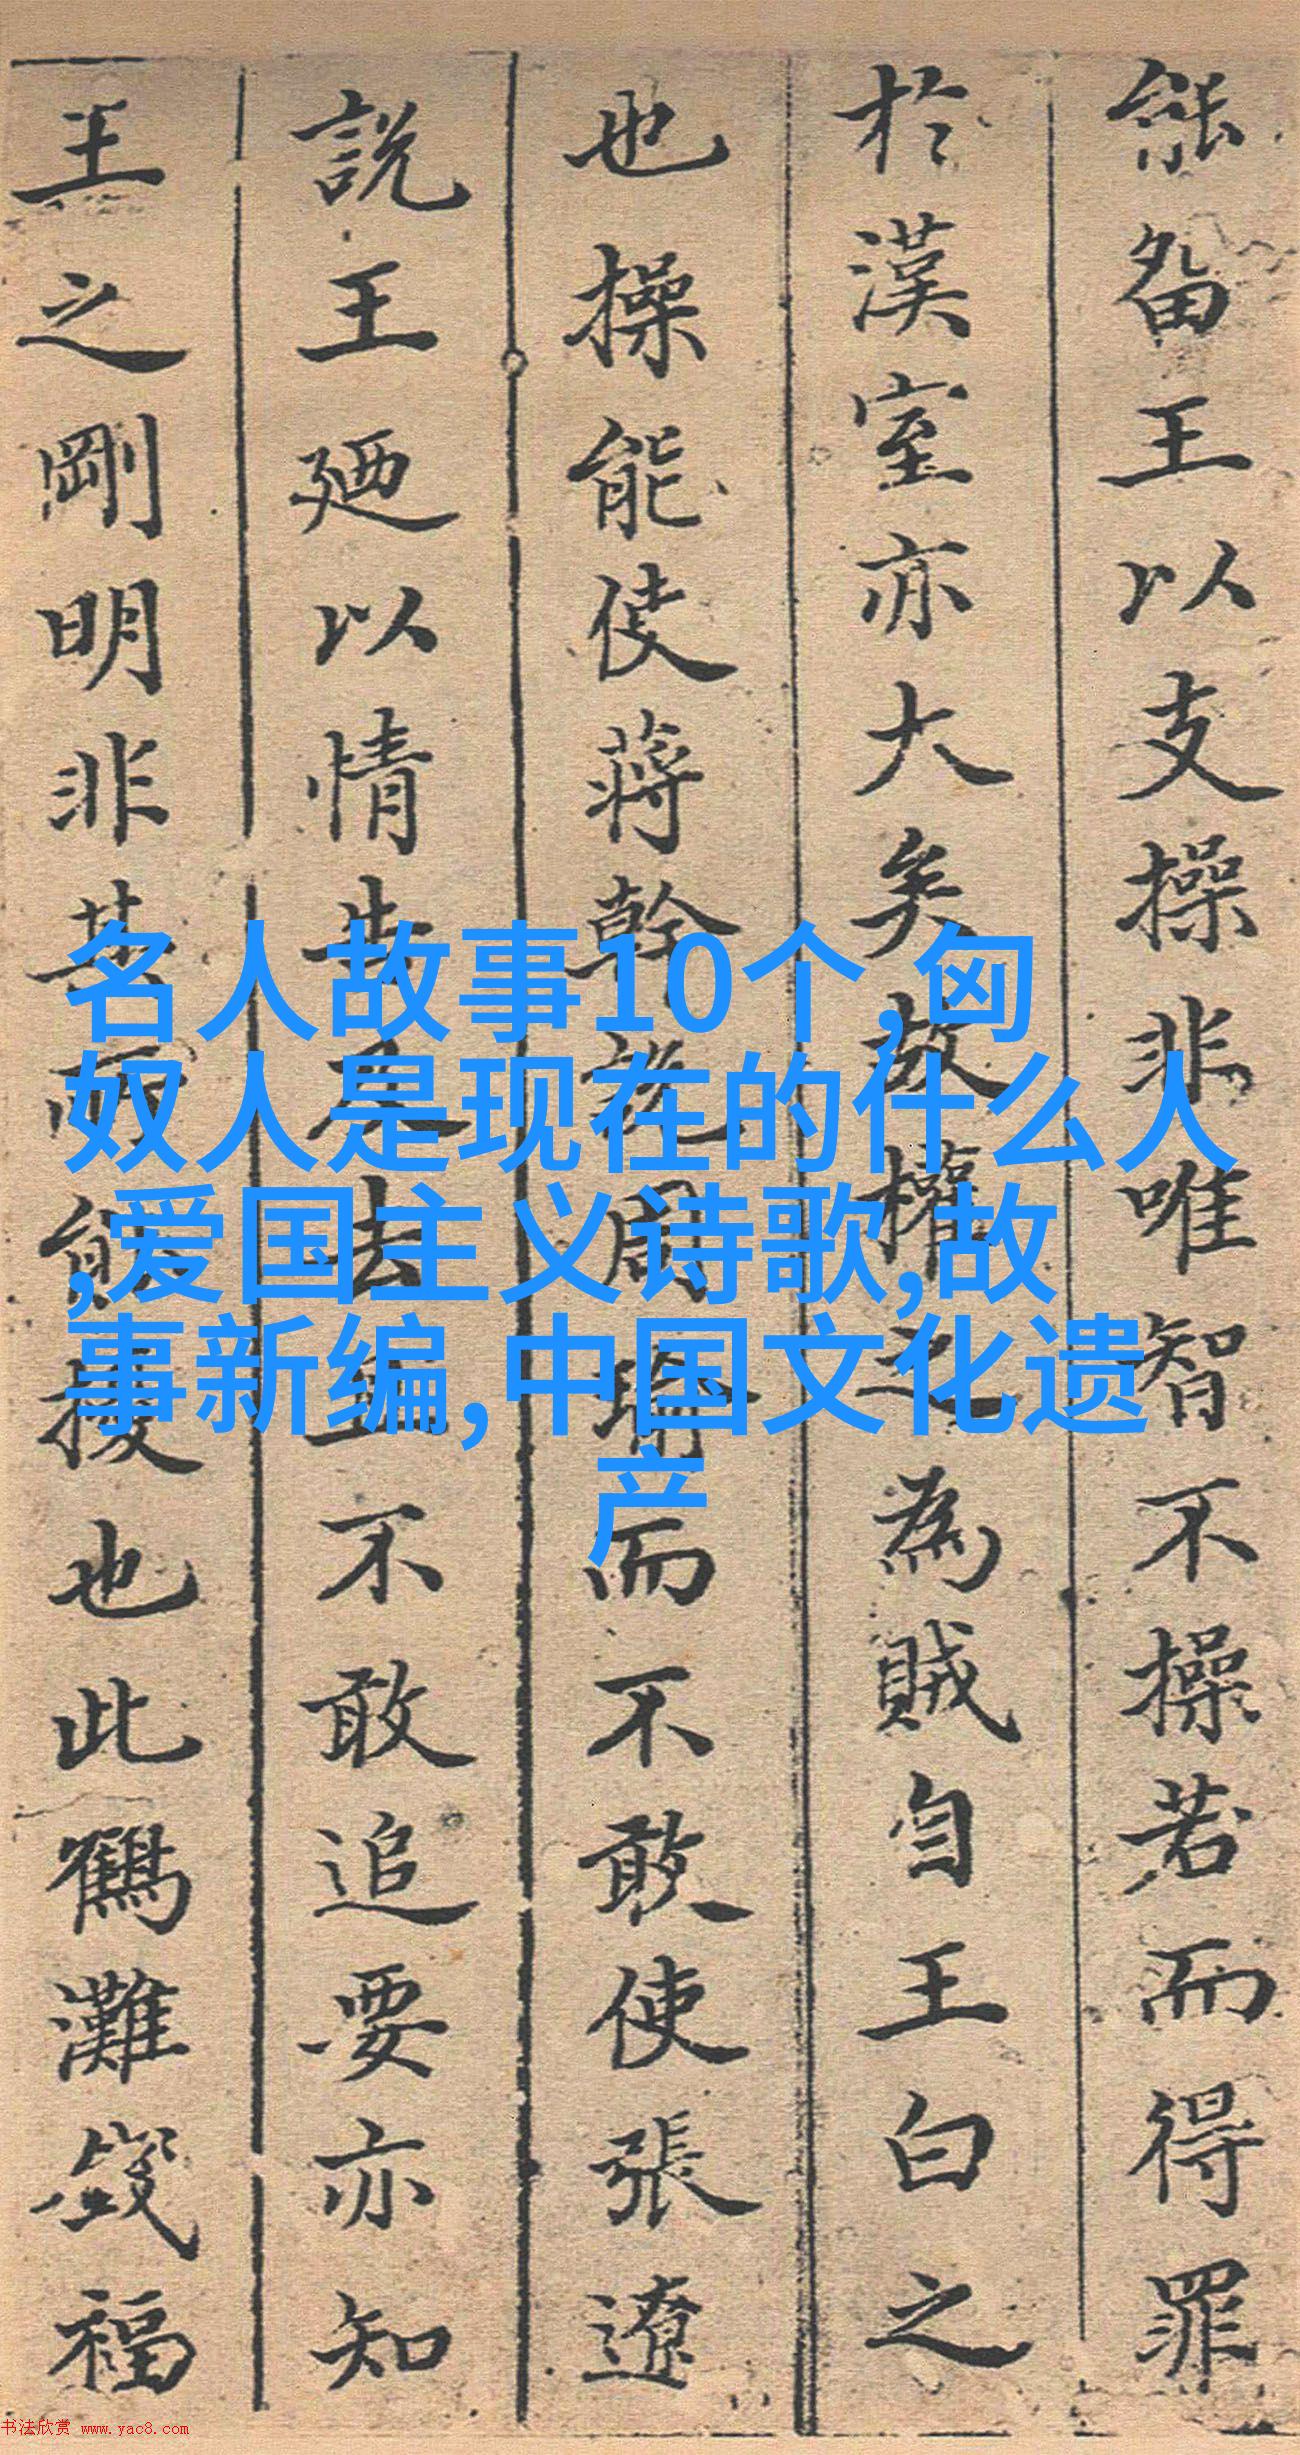 能畱王以支操非唯智不操若而得罪
於漢室亦大矣故權之為賊自王白之
也操能使蔣幹說周瑜而不敢使張遼
說王廼以情告不去王不敢追要亦知
王之剛明非其所能援也此鶴灘
福
名人故事10个,匈
奴人是现在的什么人
,爱国主义诗歌,故
事新编,中国文化遗
产
书法欣赏 www.yac8.com